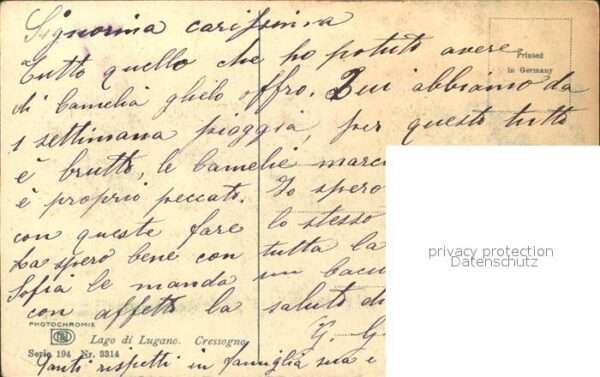 Signorina carissima
Tutto quello che ho potuto avere
di Camelia ghelo offro. Qui abbiamo da
1 settimana pioggia, per questo tutto
è brutto, le Camelie marc
è proprio peccato. Io spero
con queste fare lo stesso
La spero bene con tutta la
Sofia le manda un bacu
con affetto la saluto di
G. G
Tanti rispetti in famiglia sua e
Printed
in Germany
privacy protection
Datenschutz
PHOTOCHROMIE
Lago di Lugano. Cressogno
Serie 194 Nr. 3314